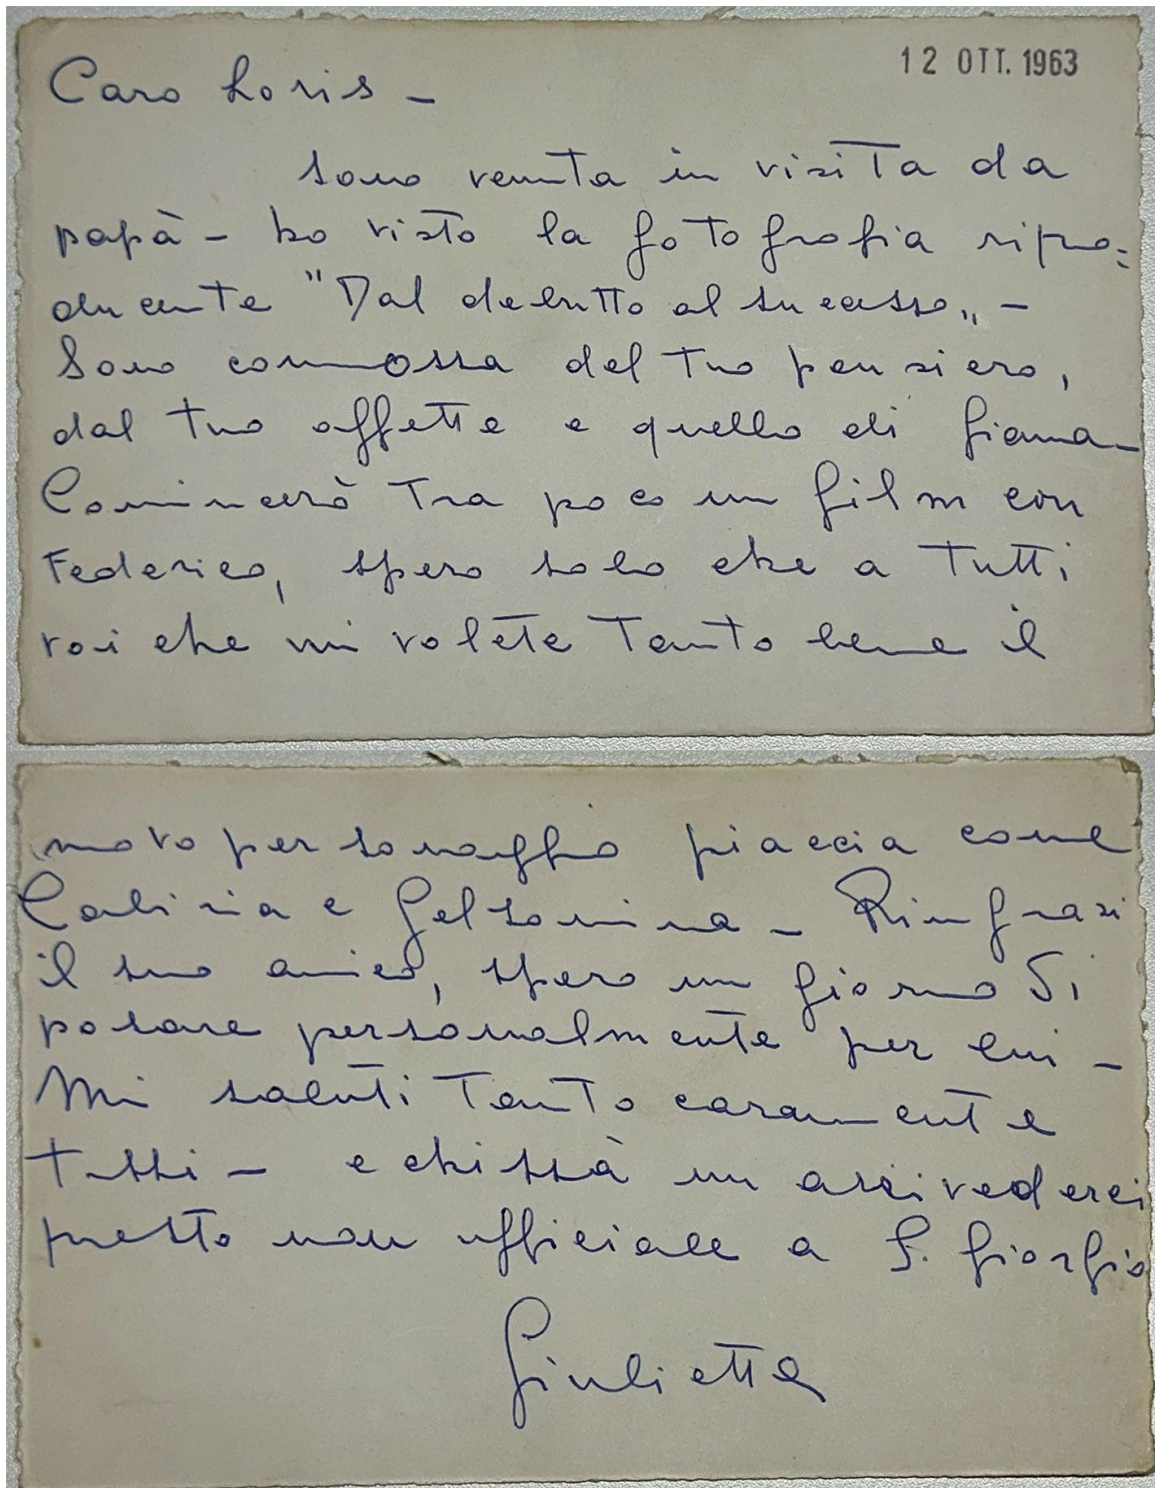 12 OTT. 1963
Caro Loris -
sono venuta in visita da
papà - ho visto la fotografia ripro=
ducente "Dal debutto al successo„ -
Sono commossa del tuo pensiero,
dal tuo affetto e quello di Gianna -
Comincerò tra poco un film con
Federico, spero solo che a tutti
voi che mi volete tanto bene il
nuovo personaggio piaccia come
Cabiria e Gelsomina - Ringrazi
il suo amico, spero un giorno di
posare personalmente per lui -
Mi saluti tanto caramente
tutti - e chissà un arrivederci
presto non ufficiale a S. Giorgio
Giulietta